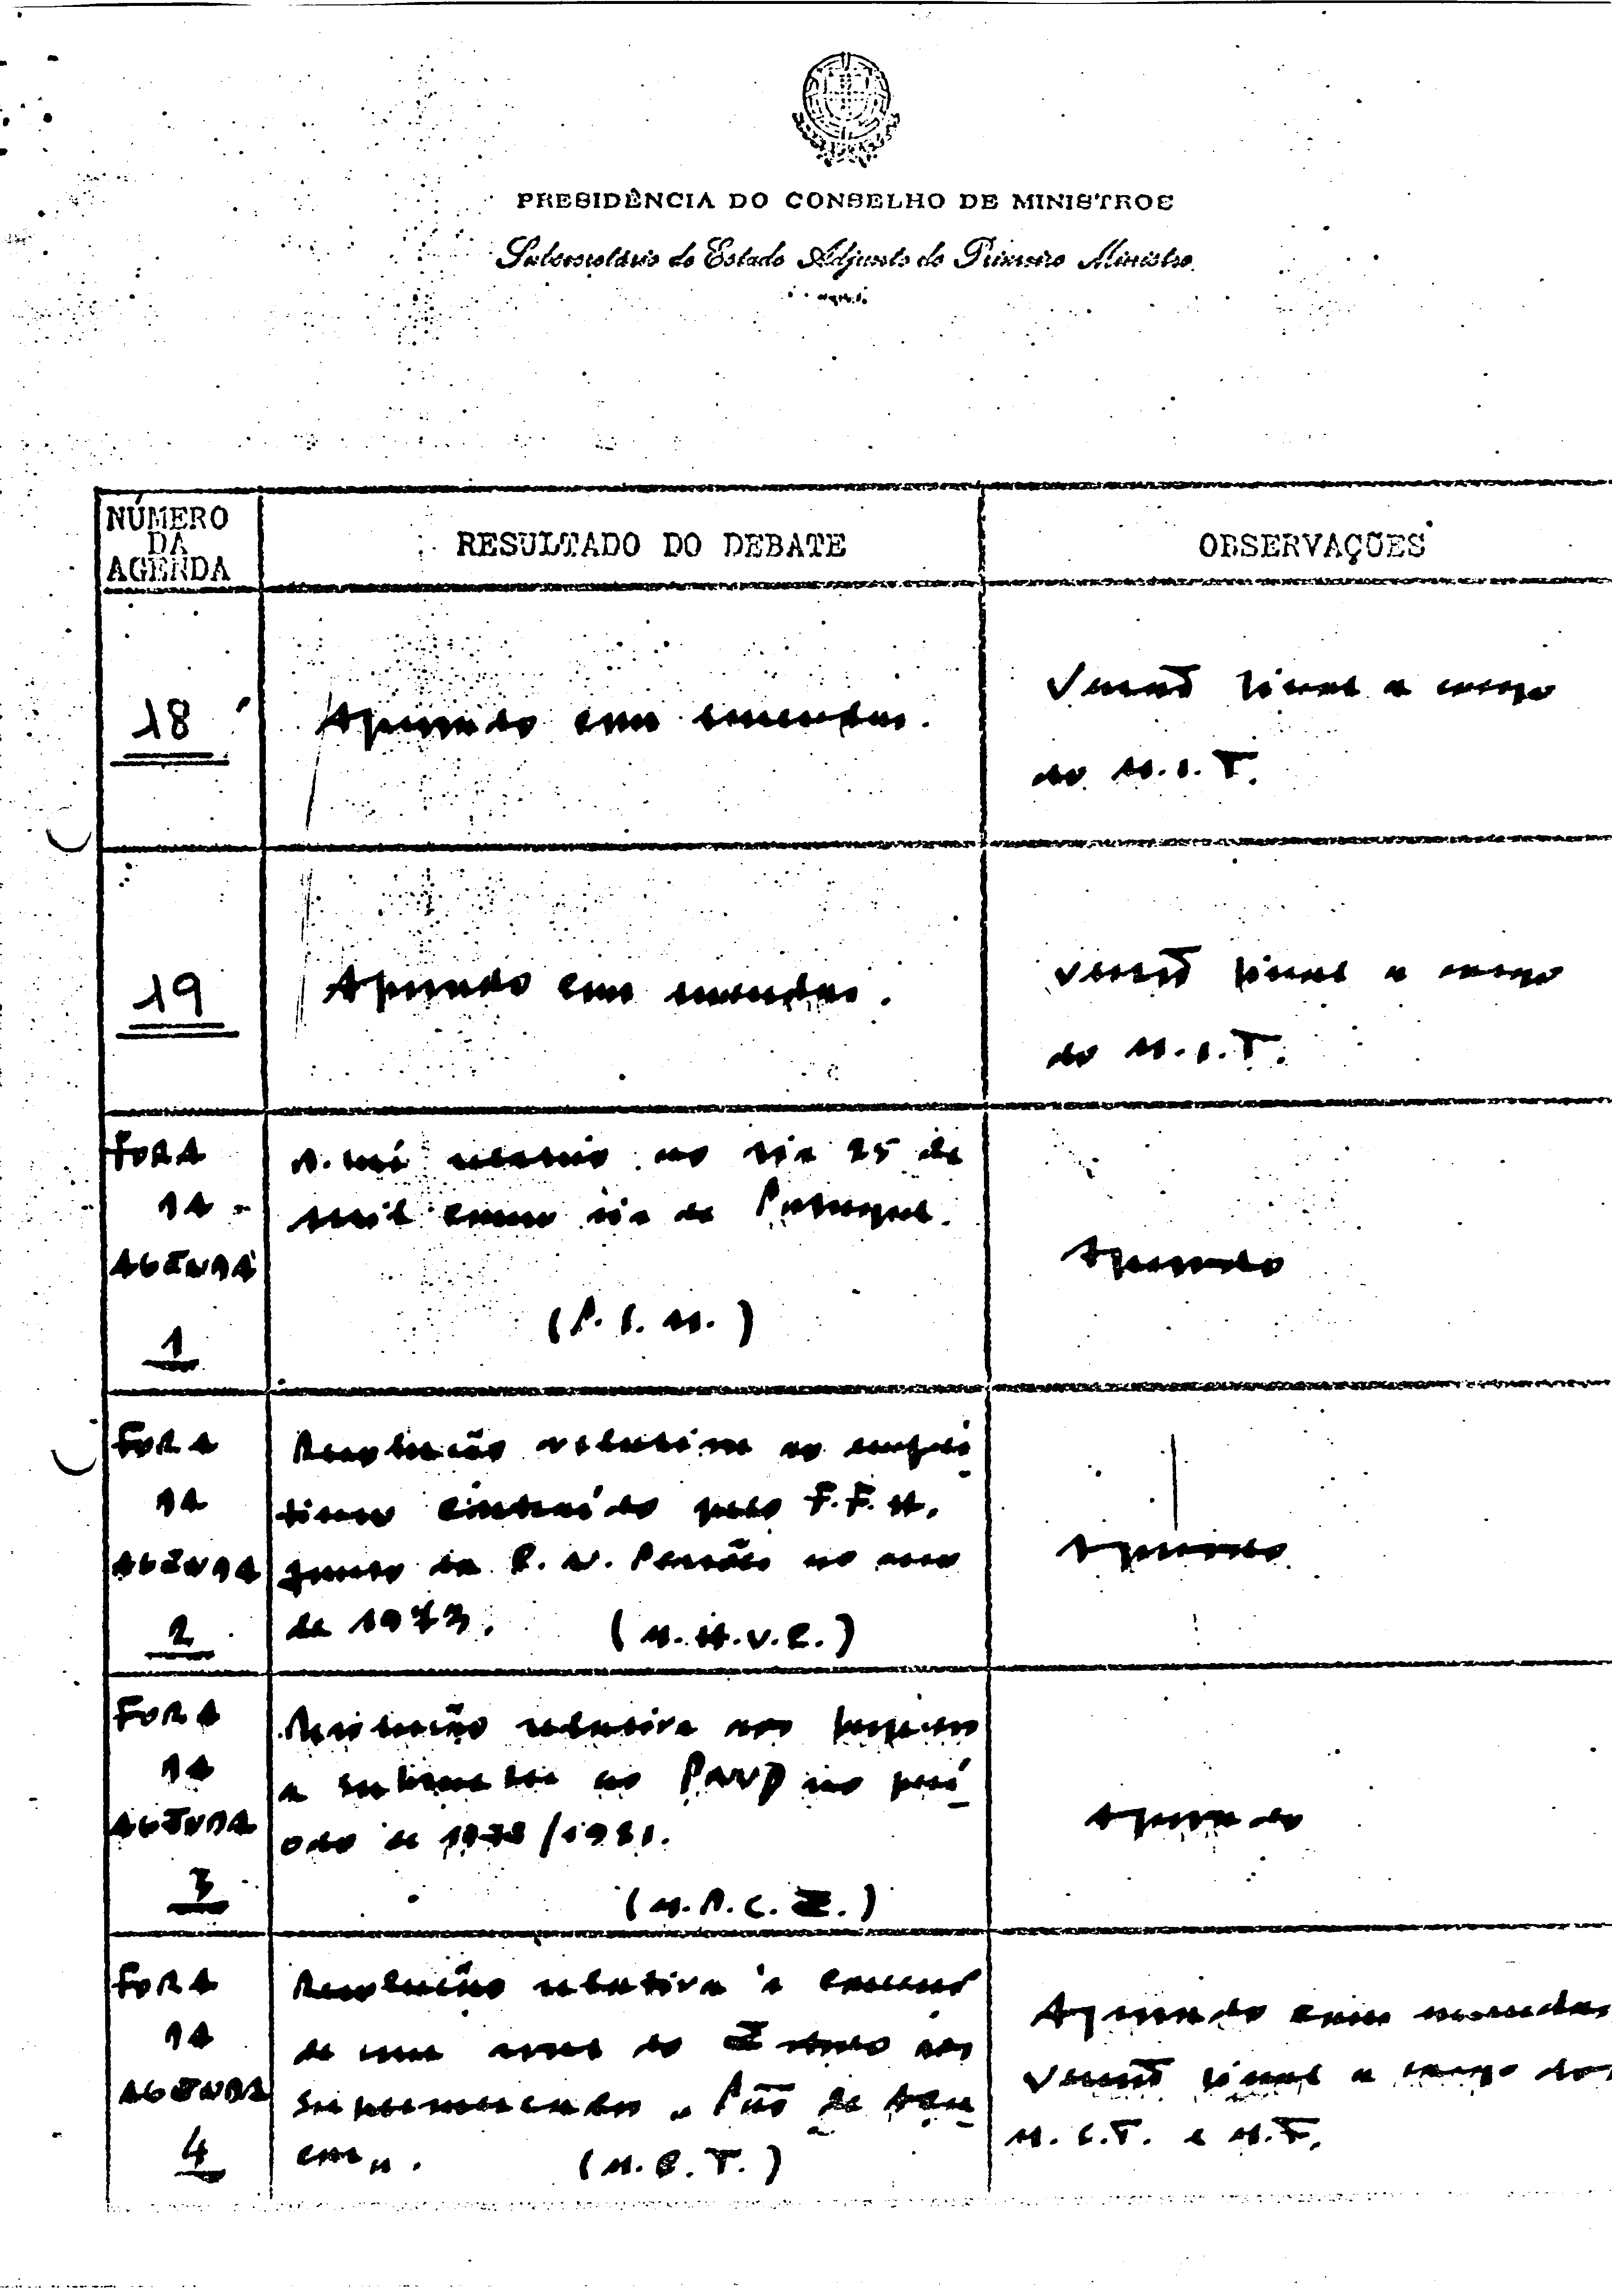 PRESIDÊNCIA DO CONSELHO DE MINISTROS
Subsecretário de Estado Adjunto do Primeiro Ministro
NÚMERO
DA
AGENDA
RESULTADO DO DEBATE
OBSERVAÇÕES
18
Aprovado com emendas.
Versão final a cargo
do M.I.T.
19
Aprovado com emendas.
Versão final a cargo
do M.I.T.
FORA
DA
AGENDA
1
relativo ao dia 25 de
Abril como dia de Portugal.
(P.M.)
Aprovado
FORA
DA
AGENDA
2
Resolução relativa ao emprés
timo contraído pelo F.F.H.
junto da C.N. Pensões no ano
de 1973.
(M.H.U.C.)
Aprovado
FORA
DA
AGENDA
3
Resolução relativa aos
a submeter ao PNUD no perí
odo de 1978/1981.
(M.P.C.E.)
Aprovado
FORA
DA
AGENDA
4
Resolução relativa à
de uma do Estado aos
supermercados "Pão de Açu
car".
(M.C.T.)
Aprovado com emendas
Versão final a cargo do
M.C.T. e M.F.